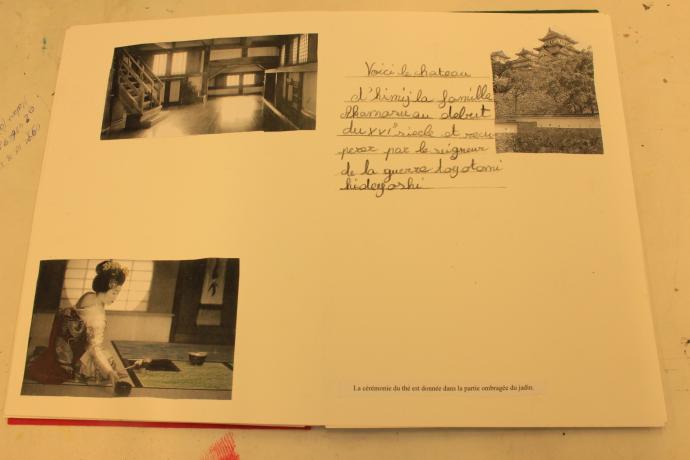 Voici le chateau
d'himéji la famille
Akamatsu au debut
du XVIe siecle et recu
perer par le seigneur
de la guerre toyotomi
hideyoshi
La cérémonie du thé est donnée dans la partie ombragée du jadin.